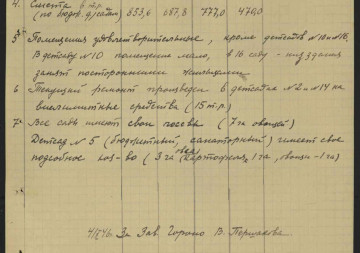 4. Смета в т.р.
(по бюдж. д/садам) 653,6 687,8 777,0 479,0
5 Помещения удовлетворительные, кроме детсадов №10 и №16.
В детсаду №10 помещение мало, в 16 саду - низ здания
занят посторонними жильцами
6 Текущий ремонт произведен в детсадах №2 и №14 на
внелимитные средства (15 т.р.)
7. Все сады имеют свои посевы (7 га овощей)
Детсад №5 (бюджетный, санаторный) имеет свое
подсобное хоз-во (3 га картофеля 1 га, овощи - 1 га)
46 г. За Зав. Гороно В. Першакова